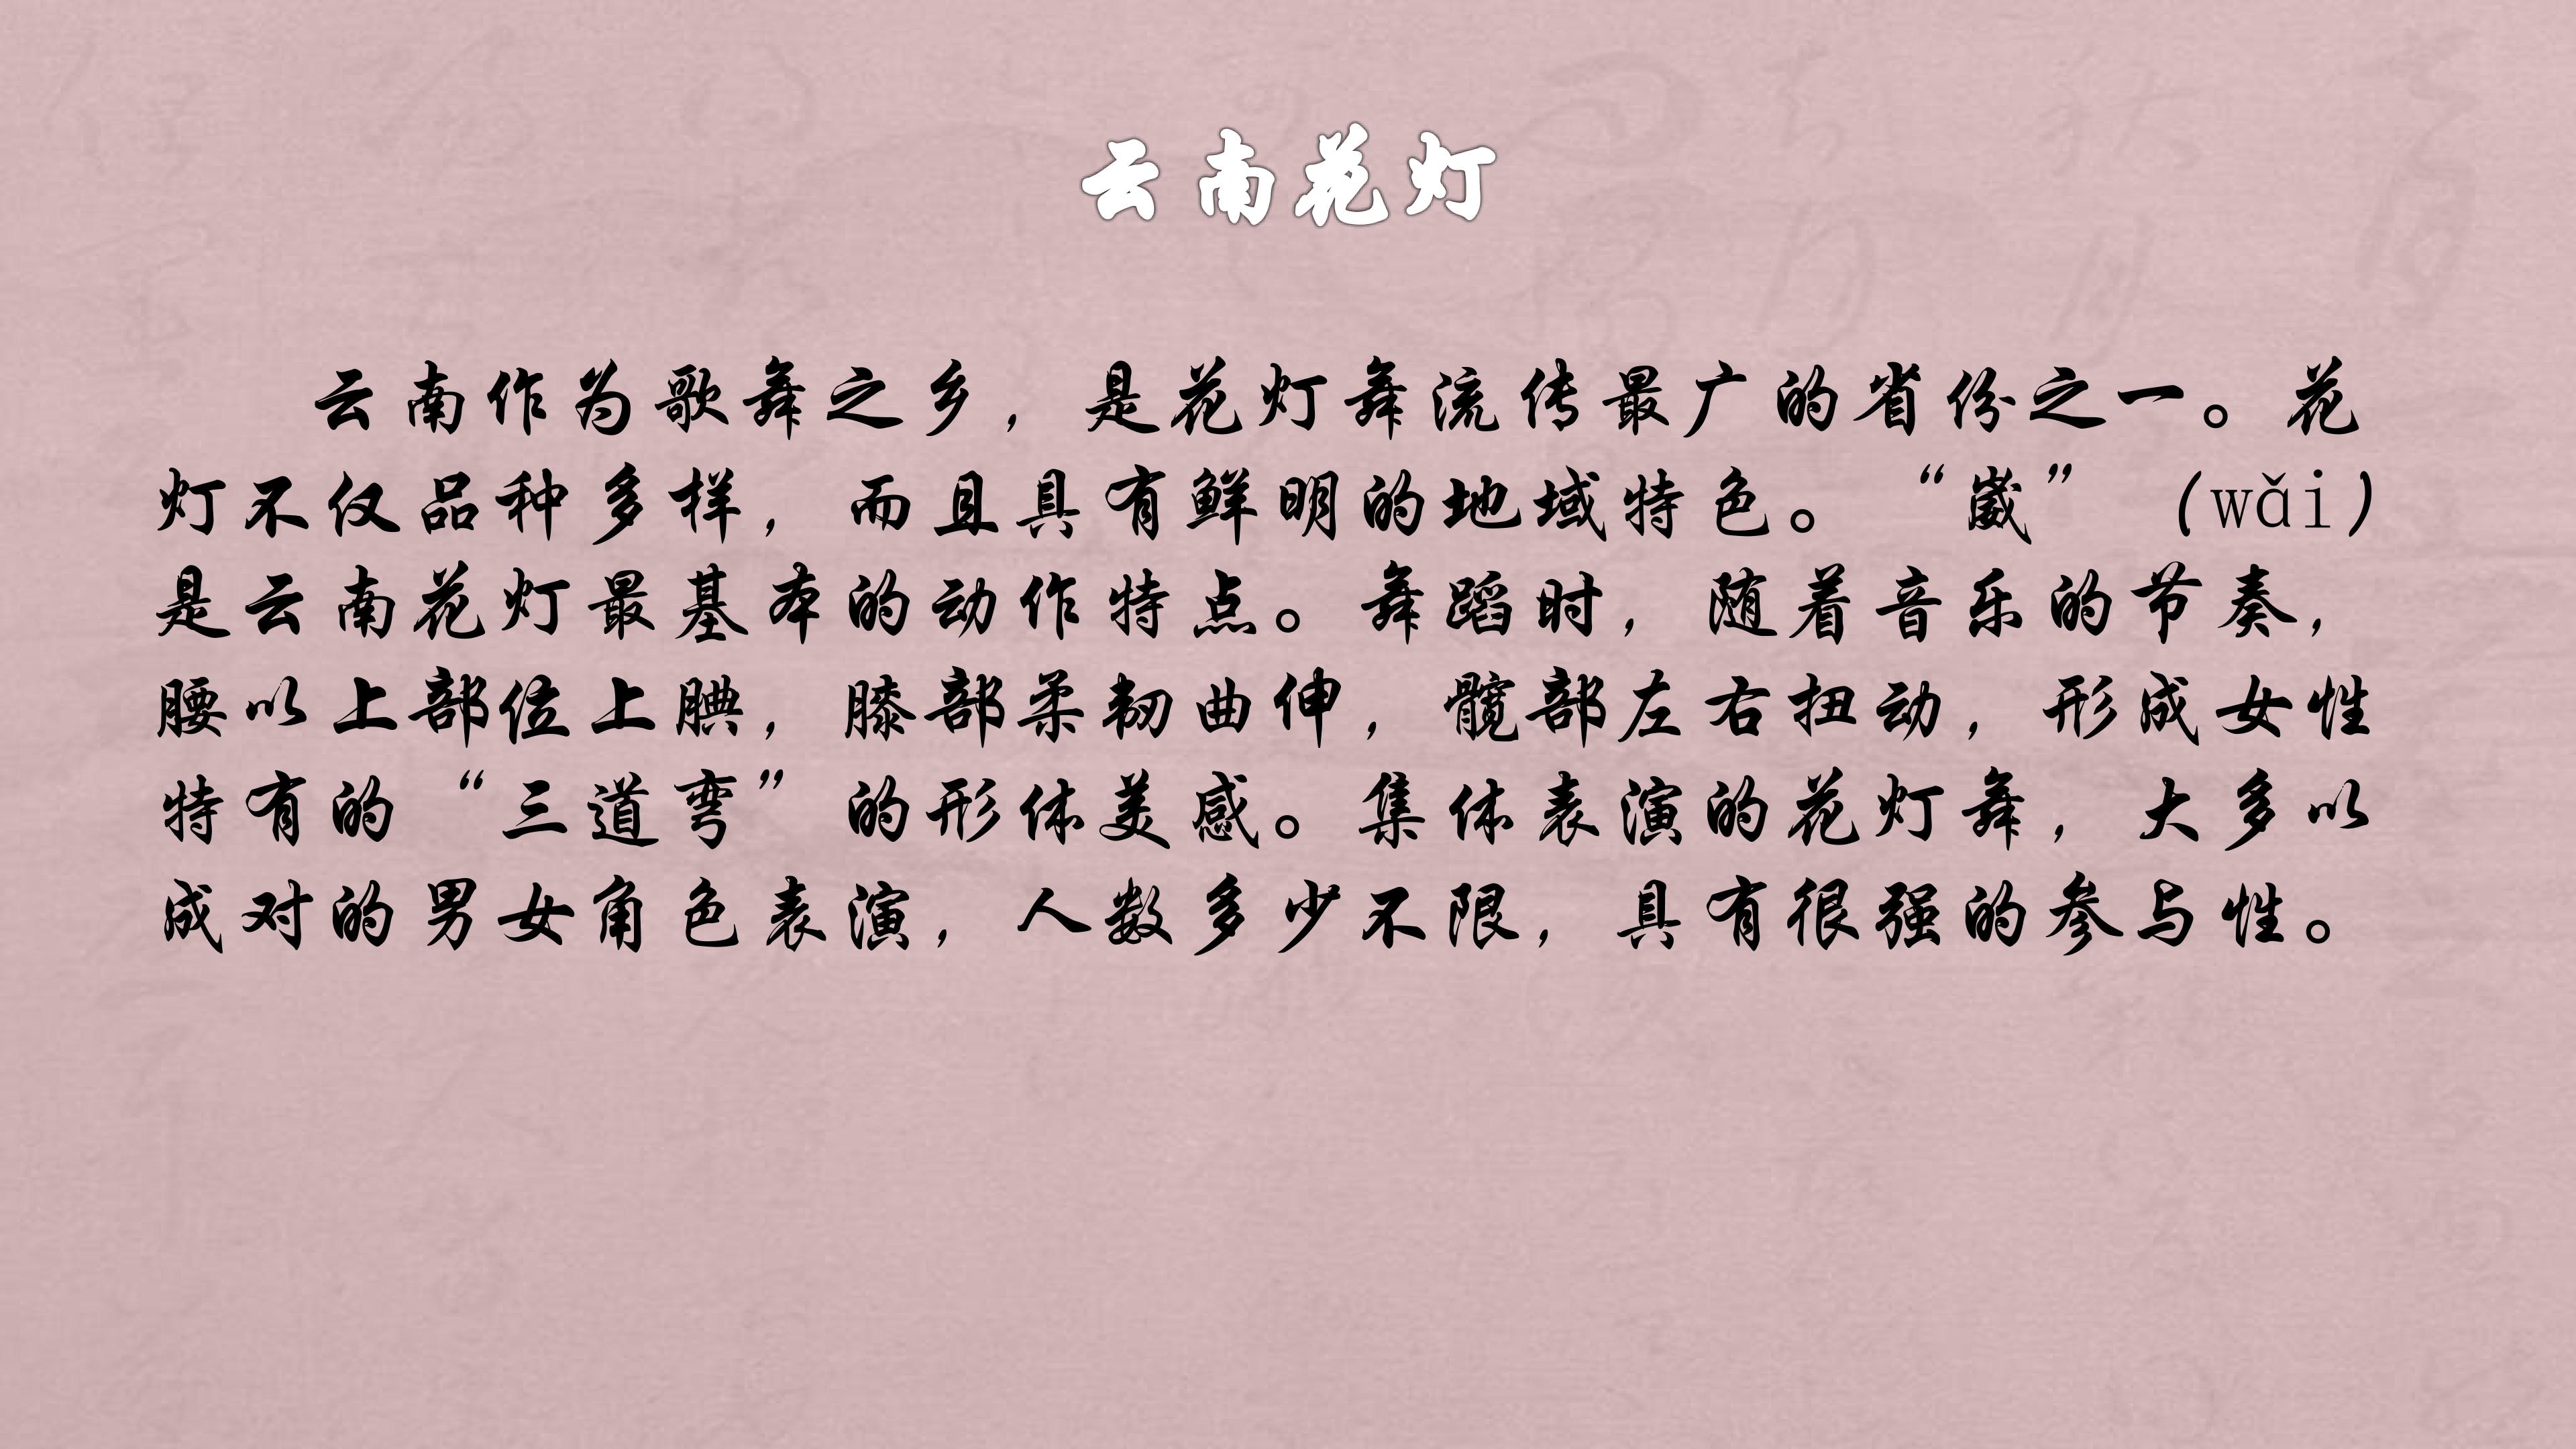 云南花灯
云南作为歌舞之乡，是花灯舞流传最广的省份之一。花
灯不仅品种多样，而且具有鲜明的地域特色。“崴”（wǎi）
是云南花灯最基本的动作特点。舞蹈时，随着音乐的节奏，
腰以上部位上腆，膝部柔韧曲伸，髋部左右扭动，形成女性
特有的“三道弯”的形体美感。集体表演的花灯舞，大多以
成对的男女角色表演，人数多少不限，具有很强的参与性。